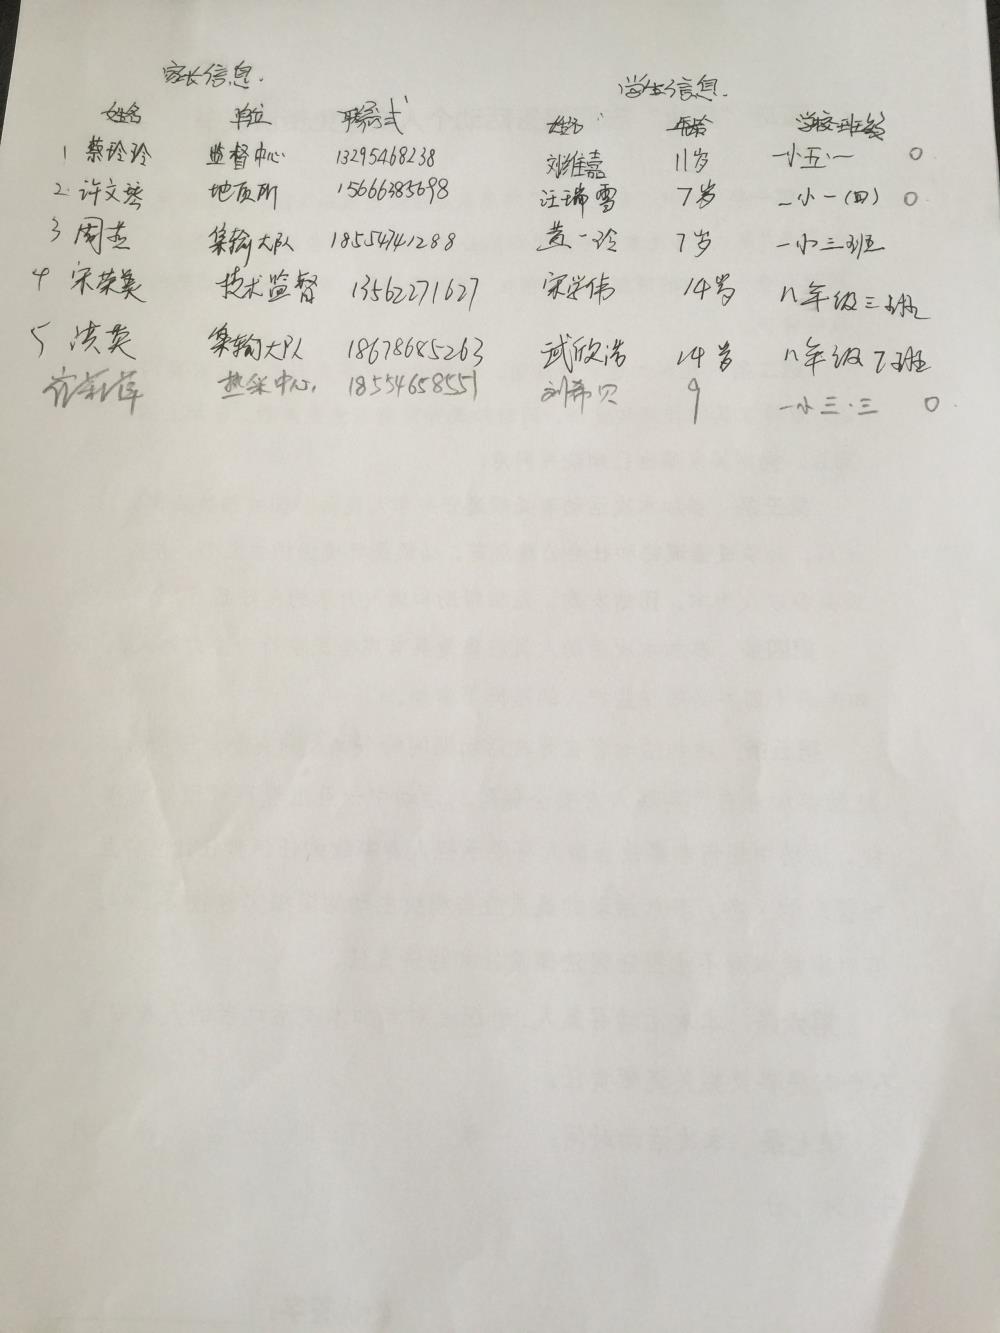 家长信息. 学生信息.
姓名 单位 联系方式 姓名 年龄 学校班级
1 蔡玲玲 监督中心 13295468238 刘维嘉 11岁 一小五·一 O
2. 许文琴 地质所 15666385698 汪瑞雪 7岁 二小一(四) O
3 周燕 集输大队 18554741288 黄一玲 7岁 一小三班
4 宋荣美 技术监督 13562271627 宋学伟 14岁 八年级三班
5 洪英 集输大队 18678685263 武欣浩 14岁 八年级7班
热采中心. 18554658551 刘希贝 9 一小三·三 O